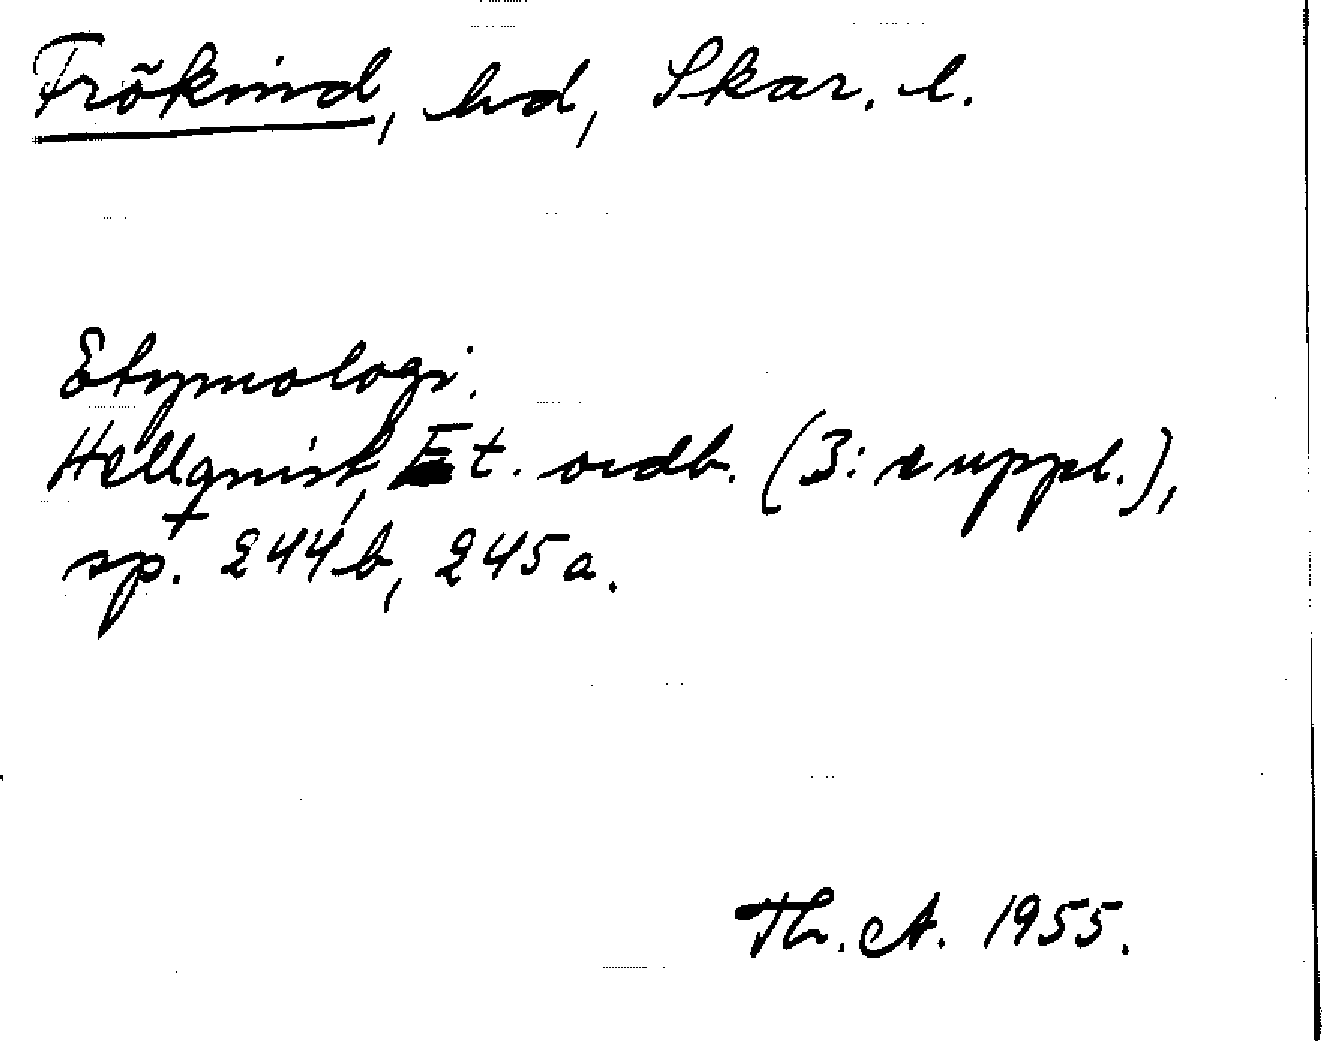 Frökind, hd, Skar. l.
Etymologi.
Hellquist, Et. ordb. (3: e uppl.),
sp. 244b, 245a.
Th. A. 1955.